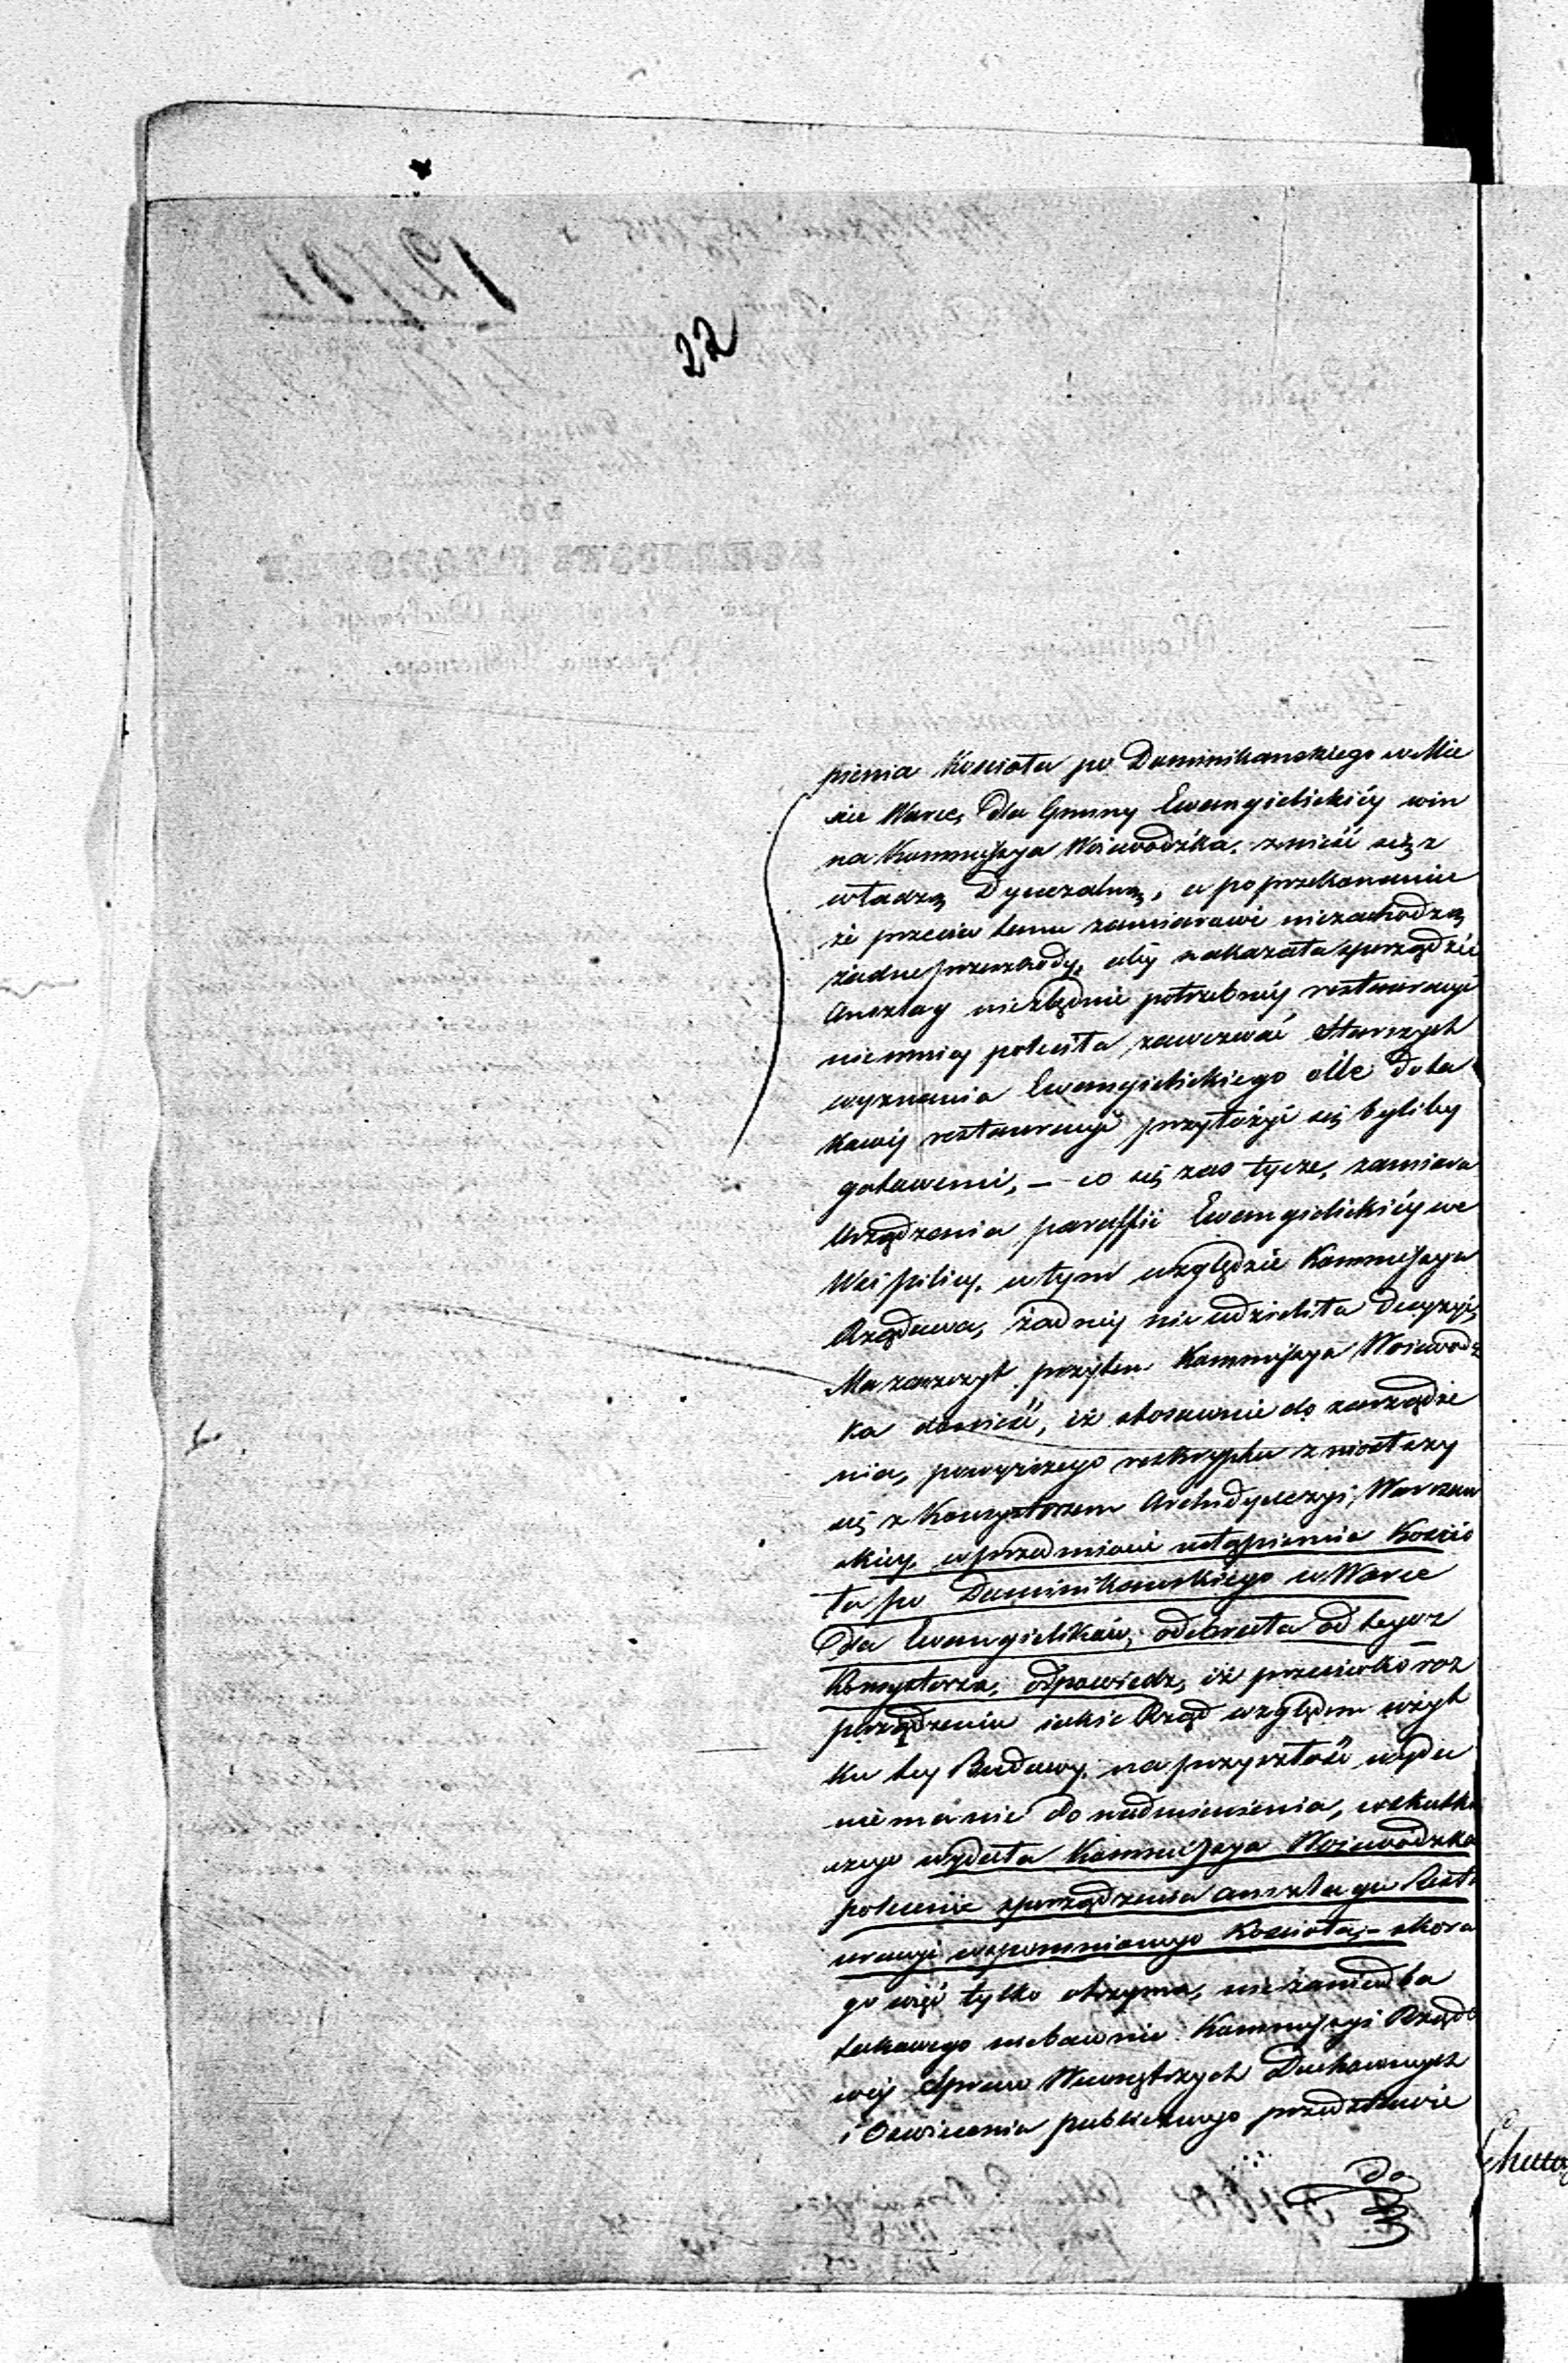 22
pienia Kościoła po Dominikanskiego w Mie
ście Warce, dla Gminy Ewangielickiéy win
na Kommissya Woiewodzka, znieść się z
władzą Dyecezalną, a po przekonaniu
że przeciw temu zamiarowi niezachodzą
żadne przeszkody, aby nakazała sporządzić
Anszlag niezbędnie potrzebnéy restauracyi
niemniey poleciła zawezwać Starszych
wyznania Ewangielickiego ille do ta
kowéy restauracyi przyłożyć się byliby
gotowemi, – co się zas tycze, zamiaru
Urządzenia paraffii Ewangielickiéy we
Wsi Pilicy, w tym względzie Kommissya
Rządowa, żadnéy nie udzieliła decyzyi,
Ma zaszczyt przytem Kommissya Woiewodz
ka donieść, iż stosownie do zarządze
nia, powyższego reskryptu zniosłszy
się z Konsystorzem Archidyecezyi Warszaw
skiey, w przedmiocie ustąpienia Kościo
ła po Dominikanskiego w Warce
dla Ewangielików, odebrała od tegoż
Konsystorza, odpowiedz, iż przeciwko roz
porządzeniu iakie Rząd względem użyt
ku tey Budowy, na przyszłość wyda
nie ma nic do nadmienienia, wskutku
czego wydała Kommissya Woiewodzka
polecenie sporządzenia anszlagu Rest
uracyi wspomnionego Kościoła, – skoro
go więc tylko otrzyma, niezaniedba
takowego niebawnie Kommissyi Rządo
wéy Spraw Wewnętrznych Duchownych
i Oświecenia publicznego przedstawić
do